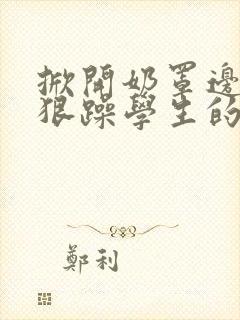 掀開奶罩邊
狠躁學生的
鄭利